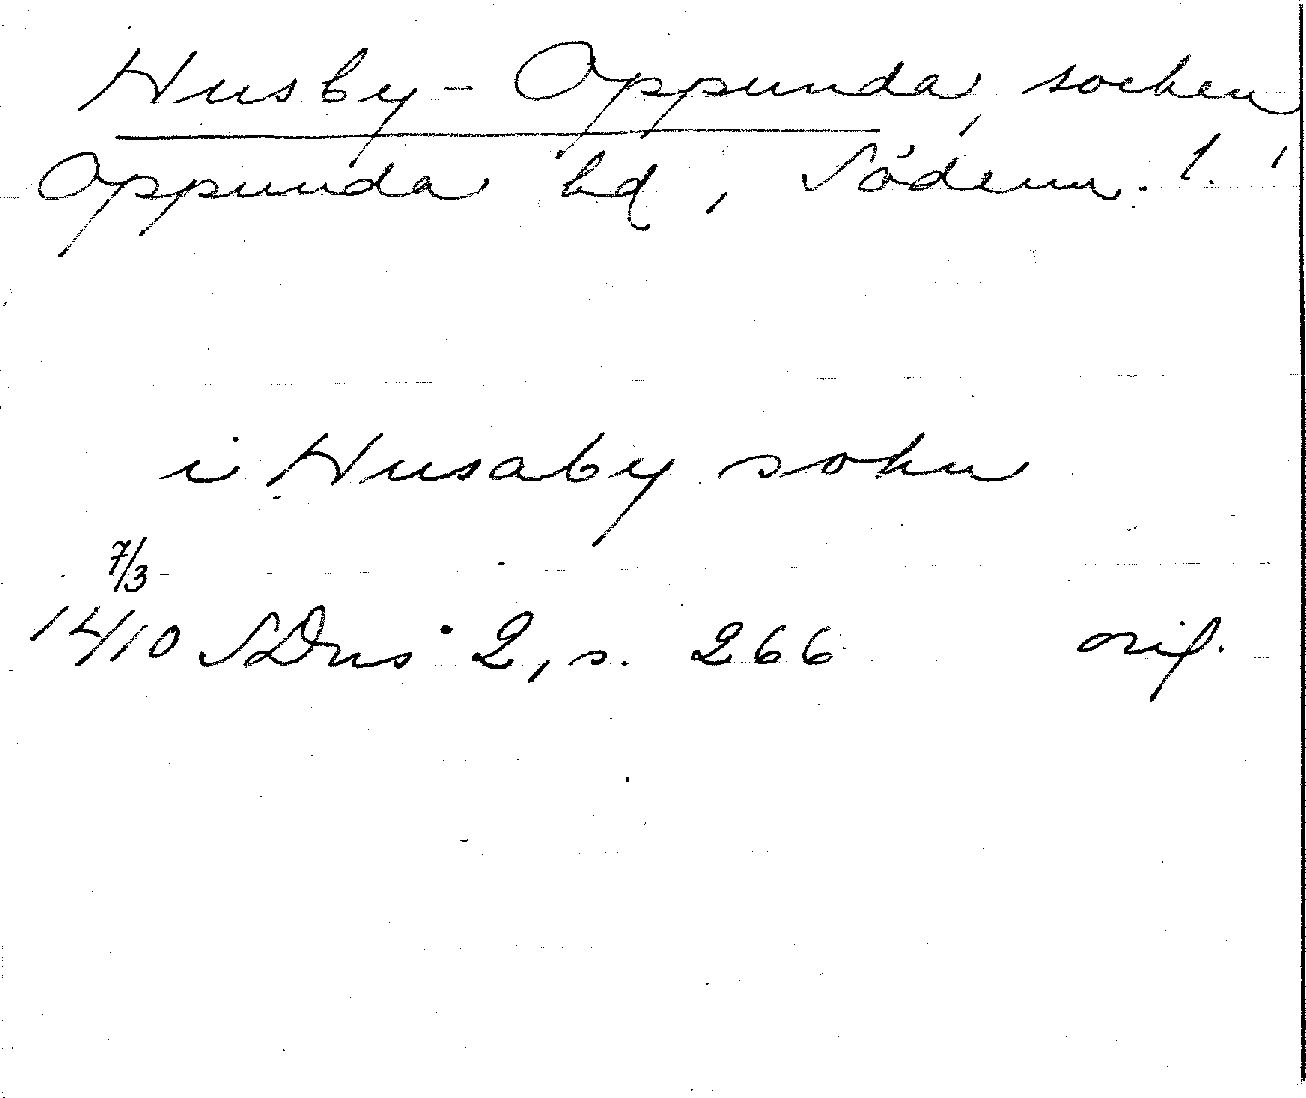 Husby-Oppunda, socken
Oppunda hd, Söderm. l.
i Husaby sokn
7/3
1410 SDns 2, s. 266 orig.